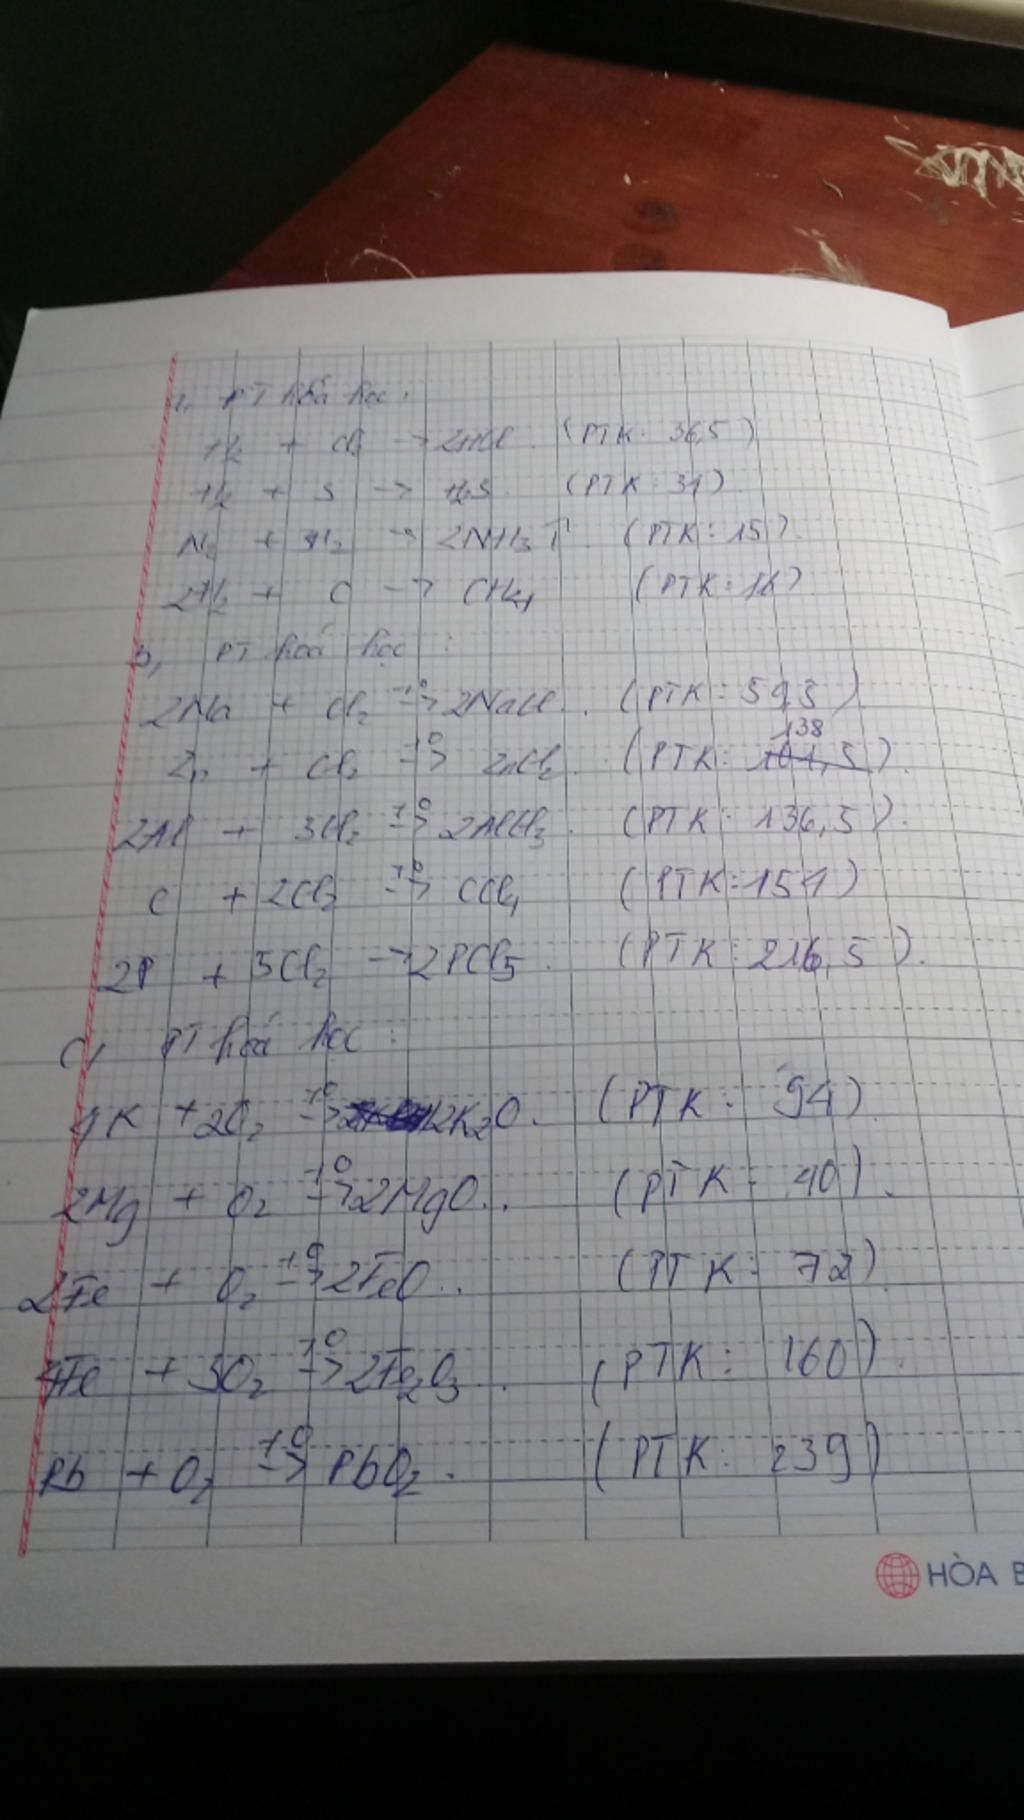 1, PT hoá học:
H2 + Cl2 → 2HCl. (PTK: 36,5)
H2 + S → H2S. (PTK: 34)
N2 + 3H2 → 2NH3↑. (PTK: 15).
2H2 + C → CH4 (PTK: 16)
b, PT hoá học:
2Na + Cl2 t°→ 2NaCl. (PTK: 593)
138
Zn + Cl2 t°→ ZnCl2. (PTK: 101,5).
2Al + 3Cl2 t°→ 2AlCl3. (PTK: 136,5).
C + 2Cl2 t°→ CCl4 (PTK: 154)
2P + 5Cl2 → 2PCl5. (PTK: 216,5).
C, PT hoá học:
4K + 2O2 t°→ 2K2O. (PTK: 94)
2Mg + O2 t°→ 2MgO.. (PTK: 40).
2Fe + O2 t°→ 2FeO.. (PTK: 72)
4Fe + 3O2 t°→ 2Fe2O3. (PTK: 160).
Pb + O2 t°→ PbO2. (PTK: 239)
HÒA B